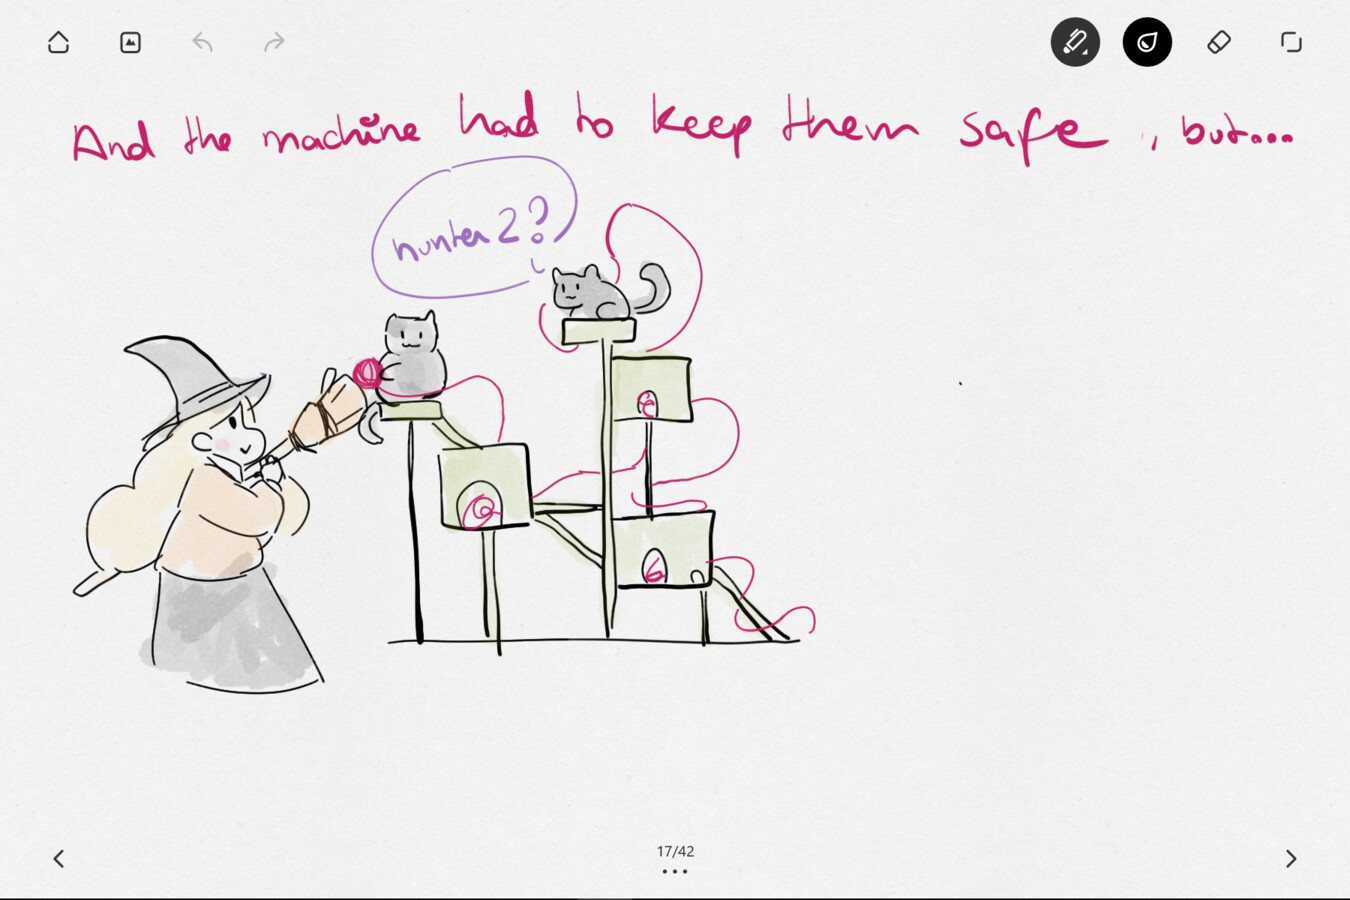 And the machine had to keep them safe, but...
hunter2?
17/42